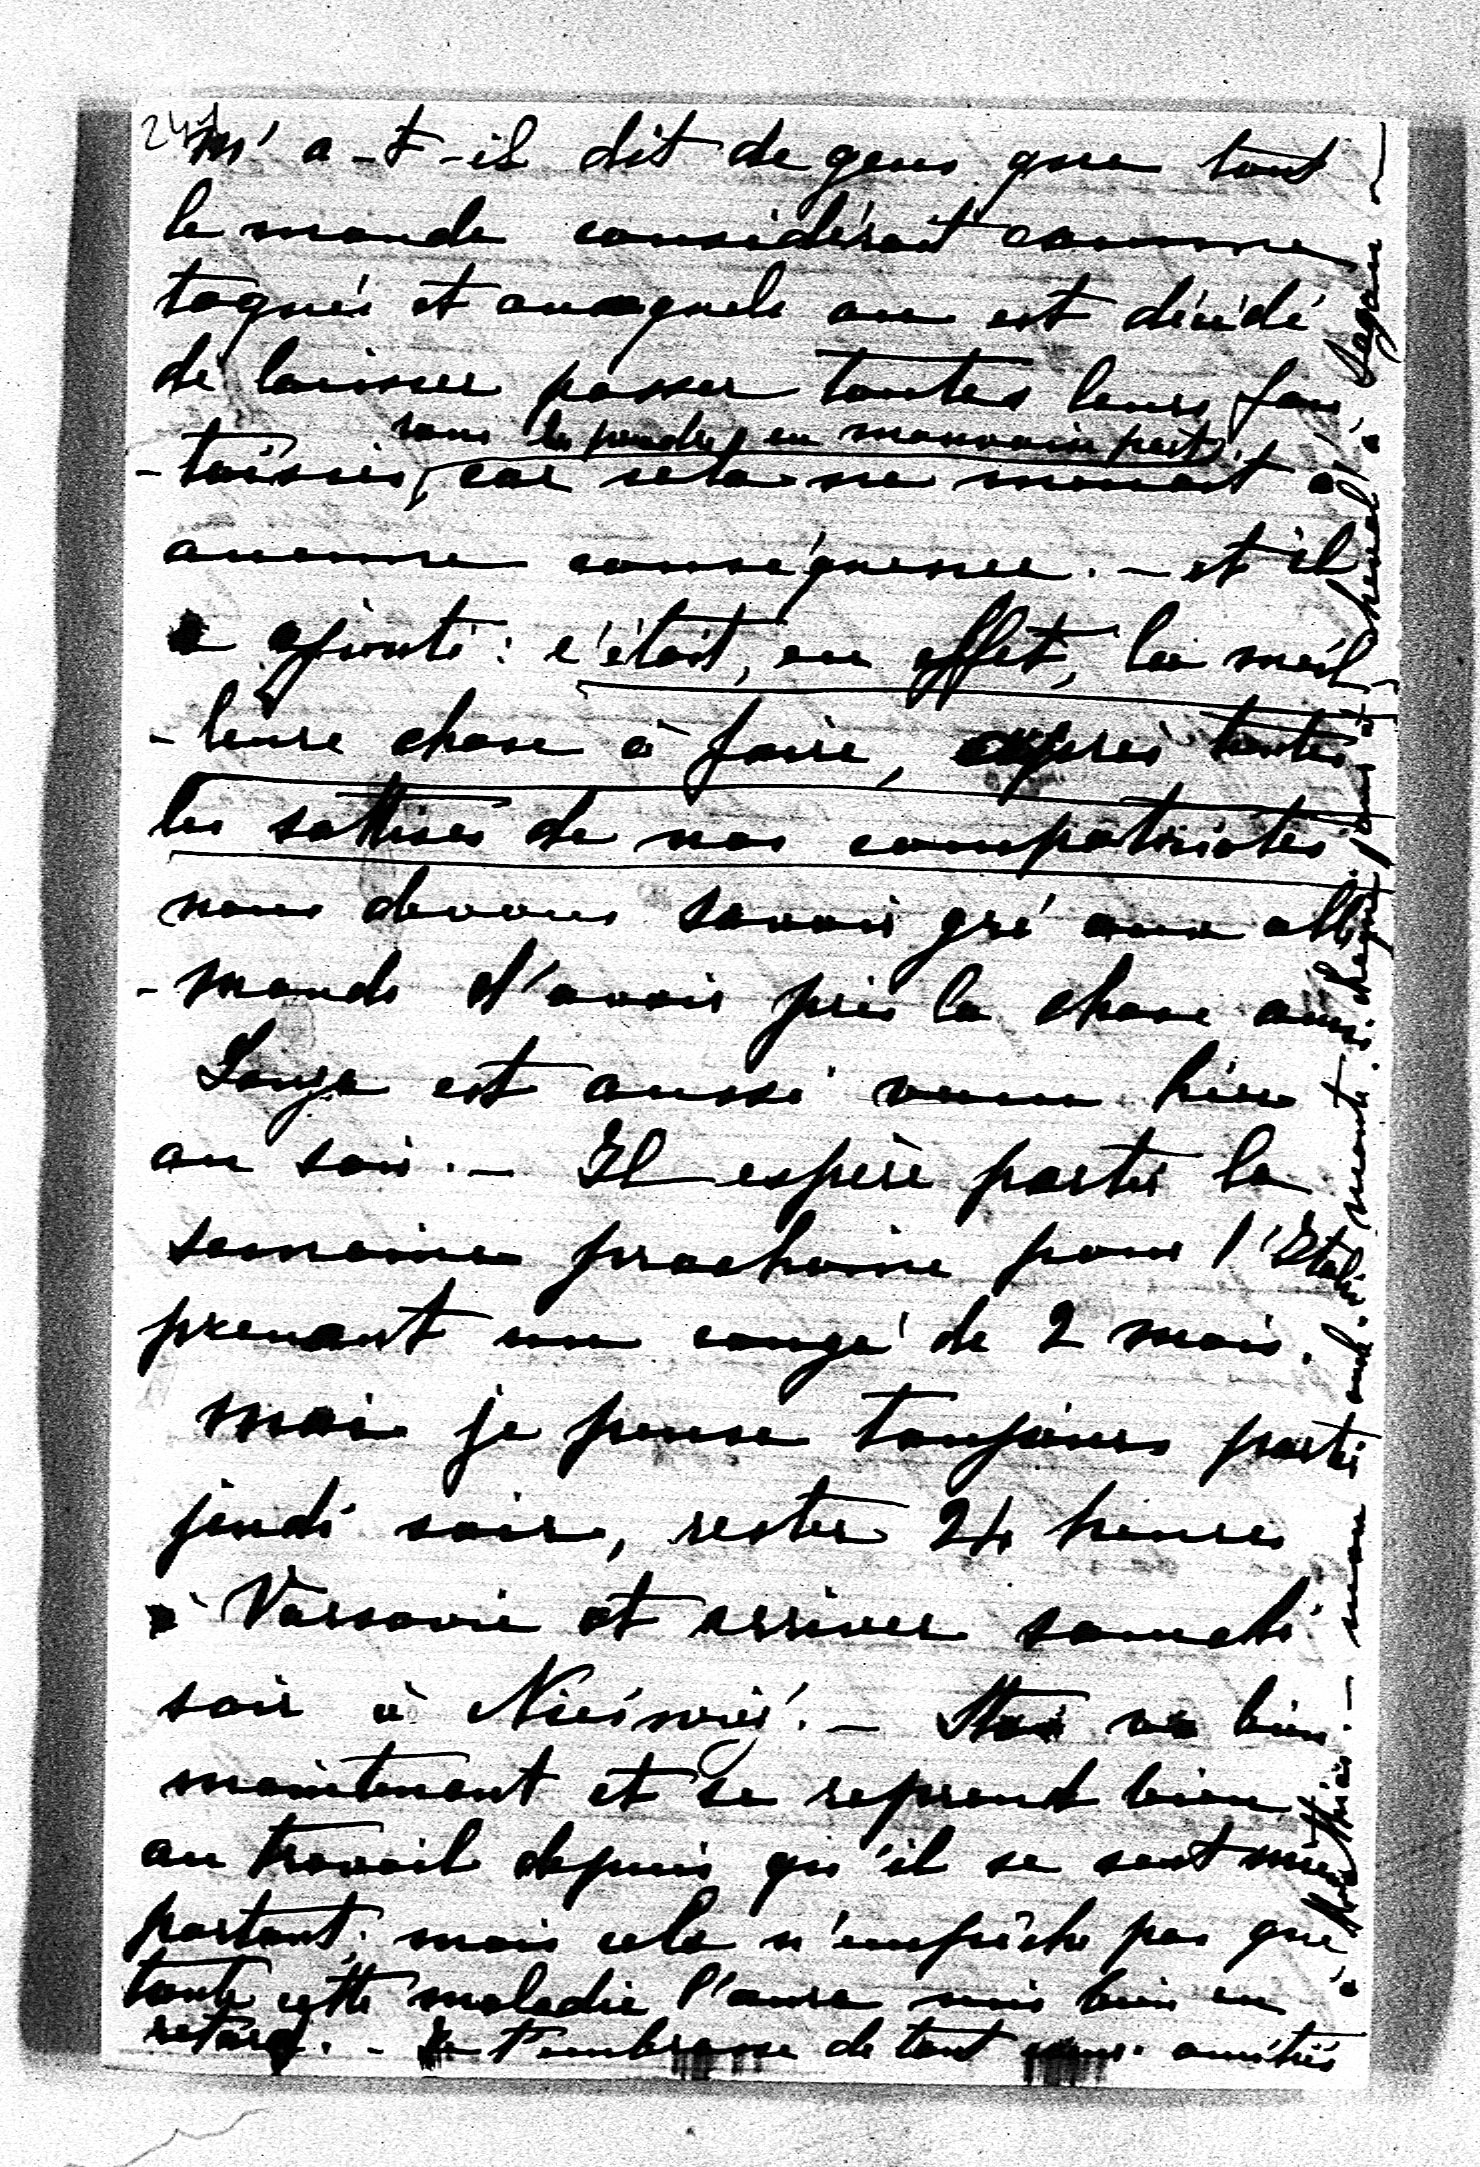 241
m'a-t-il dit de gens que tout
le monde considérait comme
toqués et auxquels on est décidé
de laisser passer toutes leurs fan
sans les prendre en mauvaise part,
-taisies, car cela ne menait à
aucune conséquence. - et il
a ajouté: c'était, en effet, la meil
-leure chose à faire, après toutes
les sottises de nos compatriotes
nous devons savoir gré aux alle
-mands d'avoir pris la chose ainsi
est aussi venu hier
au soir. - Il espère partir la
semaine prochaine pour l'Italie
prenant un congé de 2 mois.
moi je pense toujours partir
jeudi soir, rester 24 heures
à Varsovie et arriver samedi
soir à Nieśwież. - va bien
maintenant et se reprend bien
au travail depuis qu'il se sent mieux
portant; mais cela n'empêche pas que
toute cette maladie l'aura mis bien en
retard. - Je t'embrasse de tout cœur. amitiés
à Mathias. - mon monte chaque jour à cheval à Sagan -